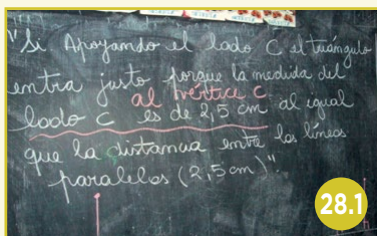 "Si. Apoyando el lado C el triángulo
entra justo porque la medida del
al vértice C
lado C es de 2,5 cm al igual
que la distancia entre las líneas
paralelas (2,5 cm)".
28.1